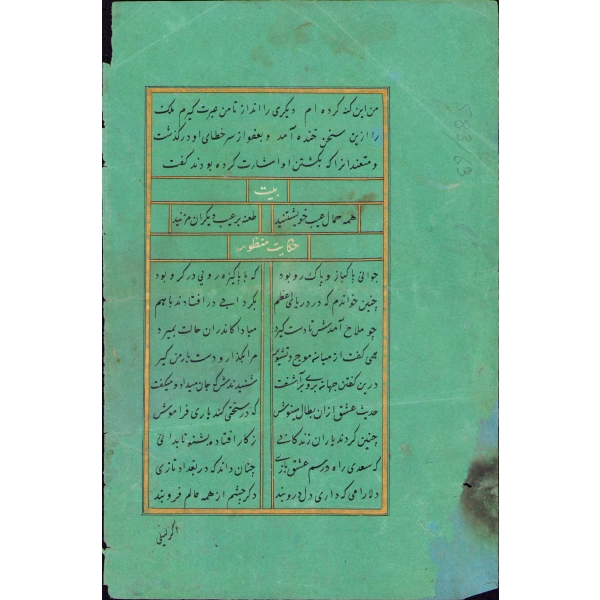 من این گنه کرده ام دیگری را انداز تا من عبرت گیرم ملک
را ازین سخن خنده آمد و بعفو از سر خطای او درگذشت
و متعندانرا که بکشتن او اشارت کرده بودند گفت
بیت
همه حمال عیب خویشتنید طعنه بر عیب دیگران مزنید
حکایت منظومه
جوانی پاکباز و پاک رو بود که با پاکیزه رویی در کرو بود
چنین خواندم که در دریای اعظم بگردابی در افتادند باهم
چو ملاح آمدش تا دست گیرد مبادا کاندران حالت بمیرد
همی گفت از میان موج و تشویر مرا بگذار و دست یار من گیر
درین گفتن جهانی بروی برآشفت شنیدندش که جان میداد و میگفت
حدیث عشق ازان بطال منیوش که در سختی کند یاری فراموش
چنین کردند یاران زندگانی ز کار افتاده بشنو تا بدانی
که سعدی راه و رسم عشق بازی چنان داند که در بغداد تازی
دلارامی که داری دل درو بند دگر چشم از همه عالم فرو بند
اگر لیلی